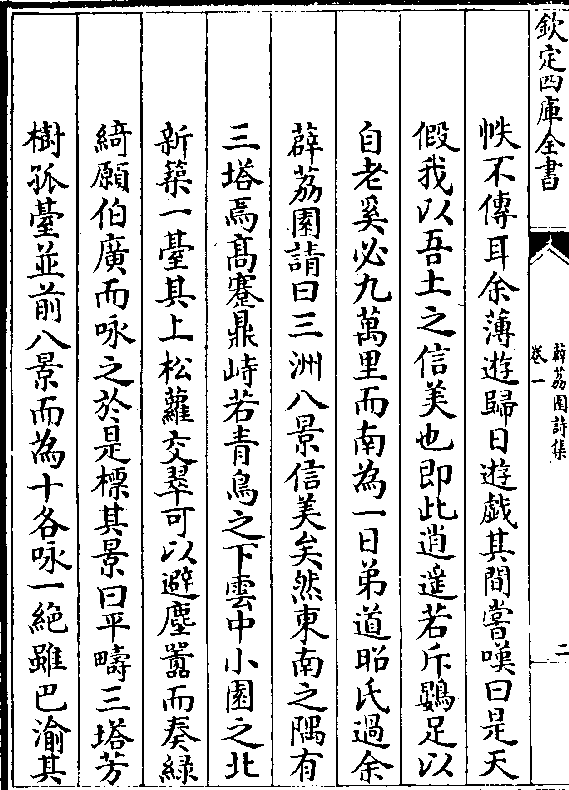 欽定四庫全書
薜荔園詩集
卷一
二
帙不傳耳余薄遊歸日遊戲其間嘗嘆曰是天
假我以吾土之信美也即此逍遥若斥鷃足以
自老奚必九萬里而南為一日弟道昭氏過余
薜荔園請曰三洲八景信美矣然東南之隅有
三塔焉髙蹇鼎峙若青鳥之下雲中小園之北
新築一臺其上松蘿交翠可以避塵囂而奏緑
綺願伯廣而咏之於是標其景曰平疇三塔芳
樹孤臺並前八景而為十各咏一絶雖巴渝其